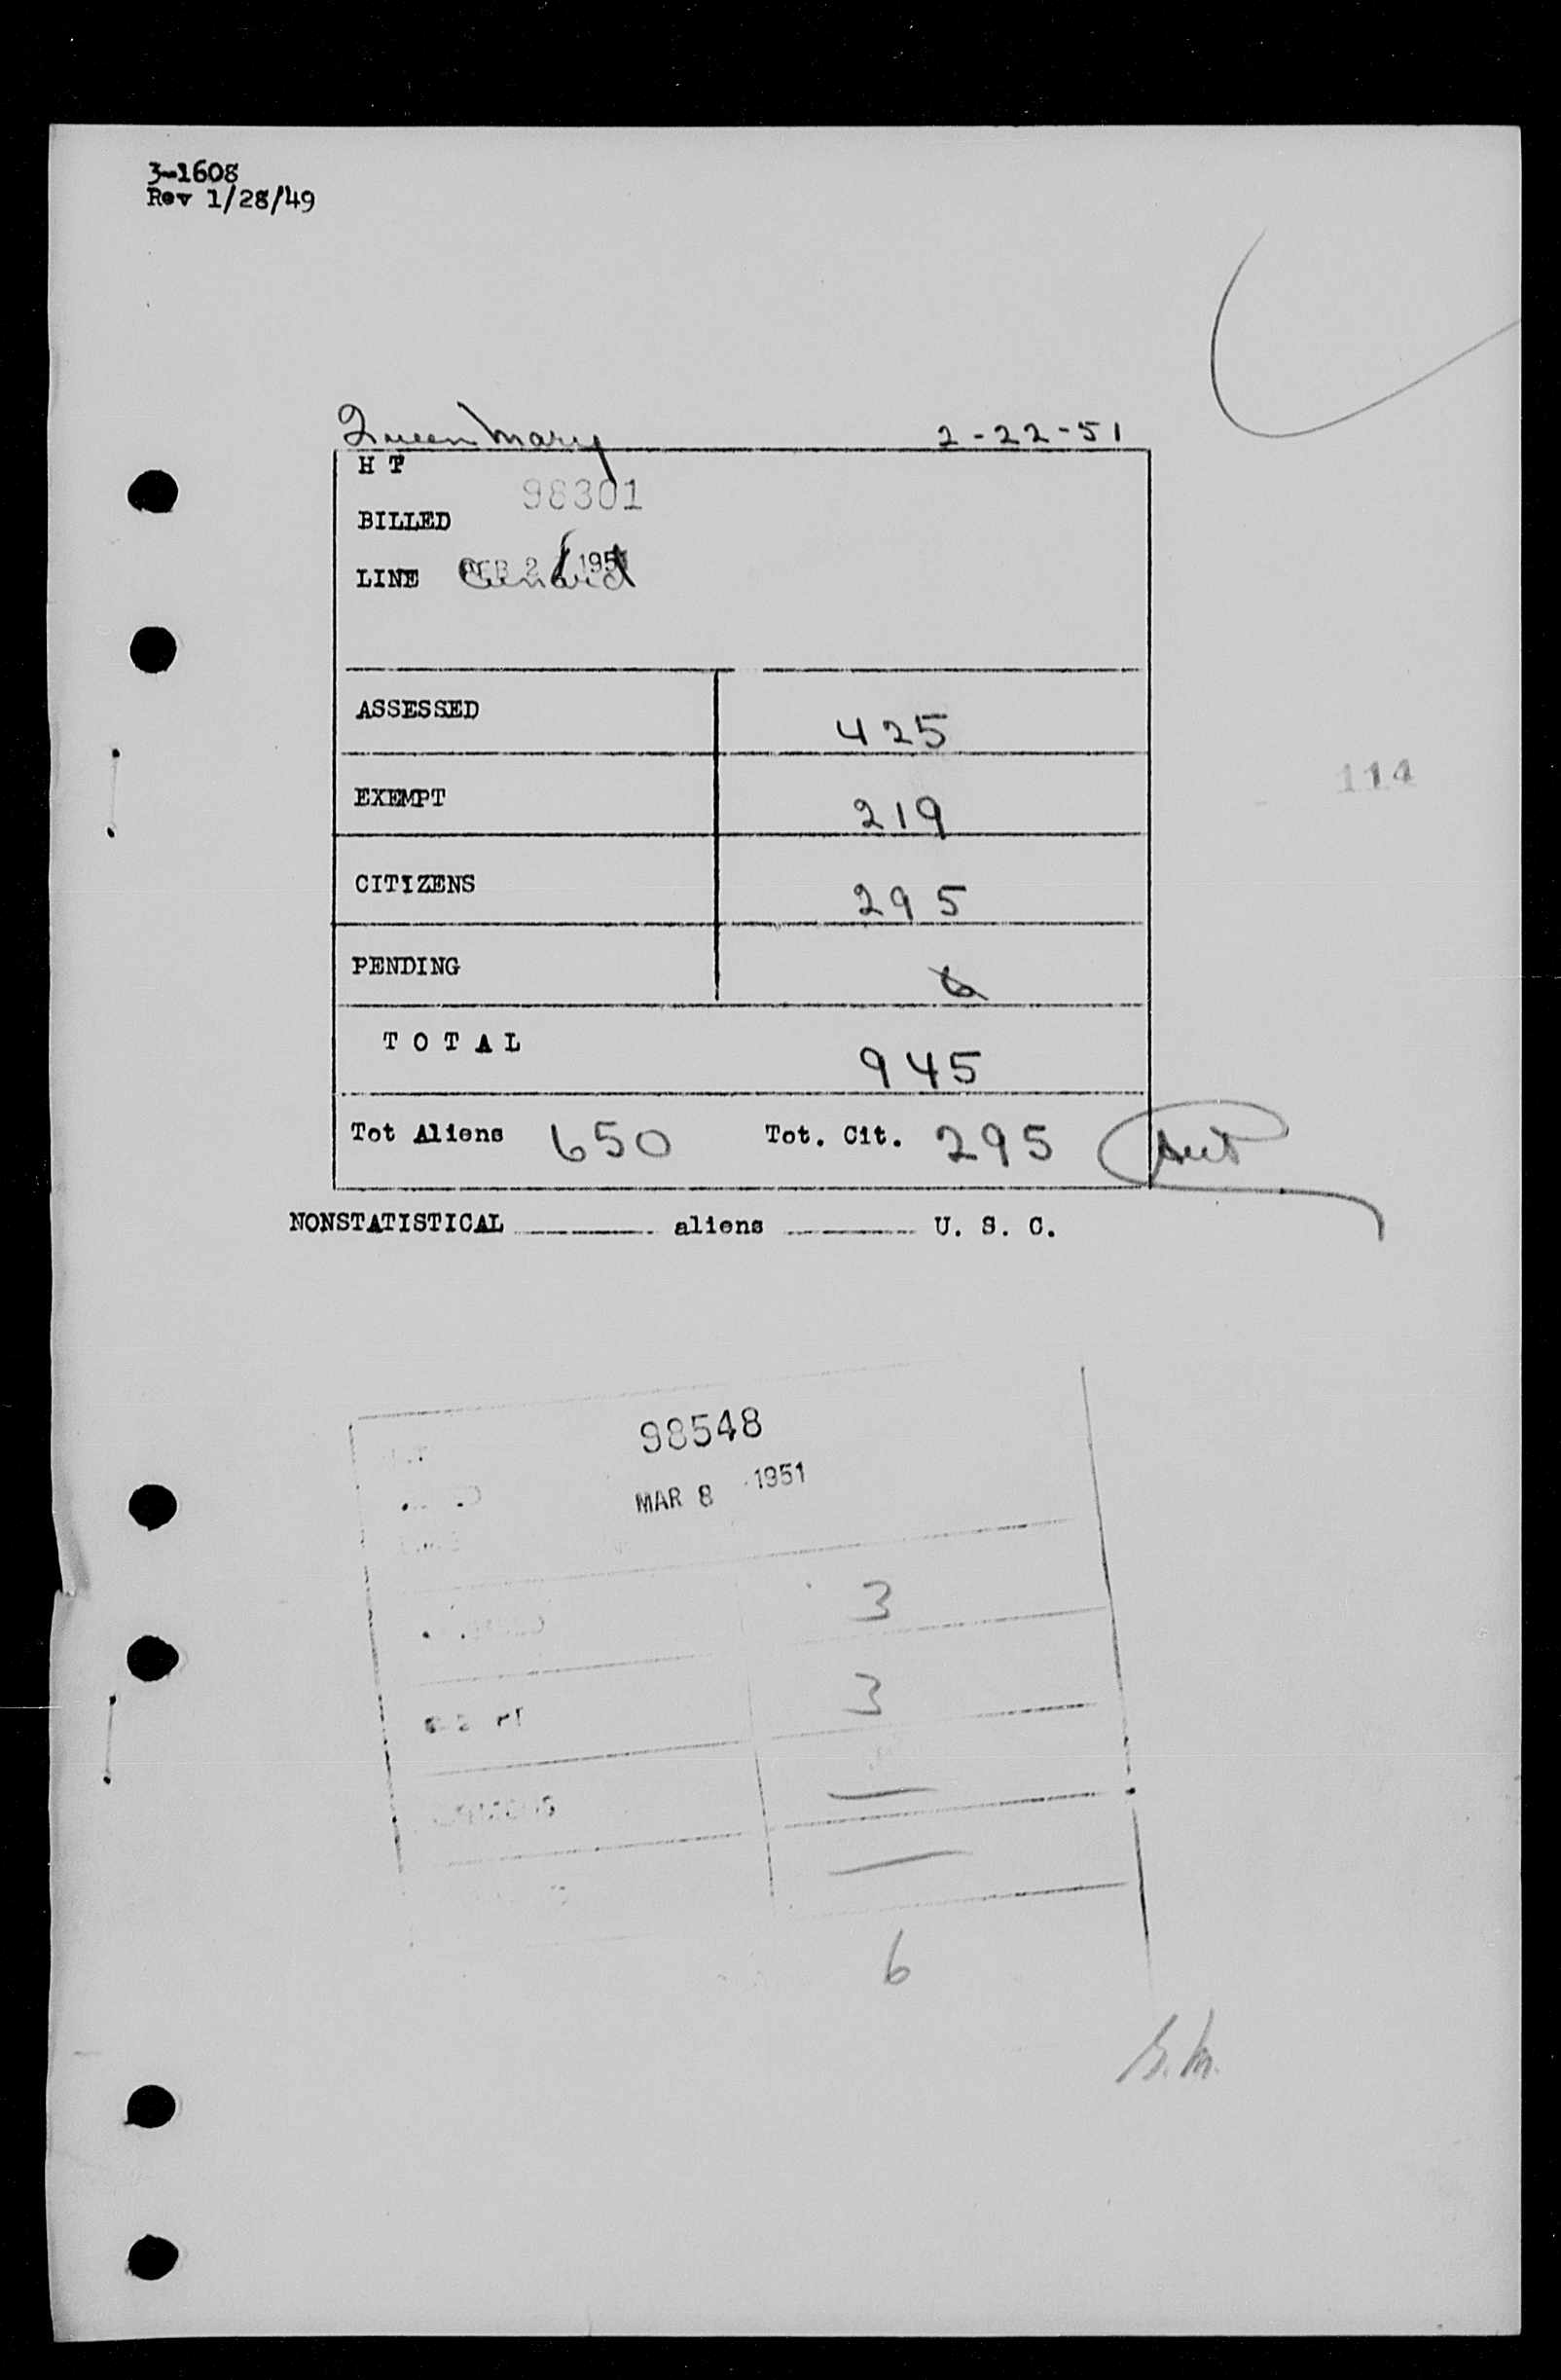 3-1608
Rev 1/28/49
Queen Mary 2-22-51
H T
98301
BILLED
LINE Cunard 1951
ASSESSED 425
114
EXEMPT 219
CITIZENS 295
PENDING 6
TOTAL 945
Tot Aliens 650 Tot. Cit. 295
NONSTATISTICAL aliens U. S. C.
98548
MAR 8 1951
3
3
6